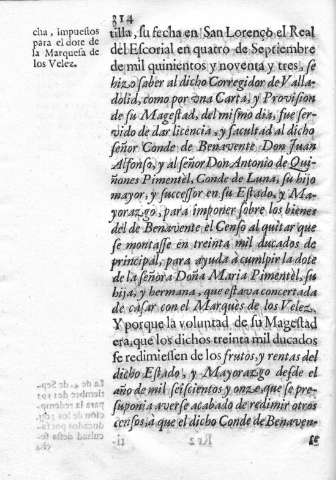 214
cha, impuestos
para el dote de
la Marquesa de
los Velez.
tilla, su fecha en San Lorenço el Real
del Escorial en quatro de Septiembre
de mil quinientos y noventa y tres, se
hizo saber al dicho Corregidor de Valla-
dolid, como por vna Carta, y Provision
de su Magestad, del mismo dia, fue ser-
vido de dar licencia, y facultad al dicho
señor Conde de Benavente Don Juan
Alfonso, y al señor Don Antonio de Qui-
ñones Pimentèl, Conde de Luna, su hijo
mayor, y successor en su Estado, y Ma-
yorazgo, para imponer sobre los bienes
dèl de Benavente el Censo al quitar que
se montasse en treinta mil ducados de
principal, para ayuda à cumplir la dote
de la señora Doña Maria Pimentèl, su
hija, y hermana, que estava concertada
de casar con el Marquès de los Velez.
Y porque la voluntad de su Magestad
era, que los dichos treinta mil ducados
se redimiessen de los frutos, y rentas del
dicho Estado, y Mayorazgo desde el
año de mil seiscientos y onze, que se pre-
suponia averse acabado de redimir otros
censos, à que el dicho Conde de Benaven-
te